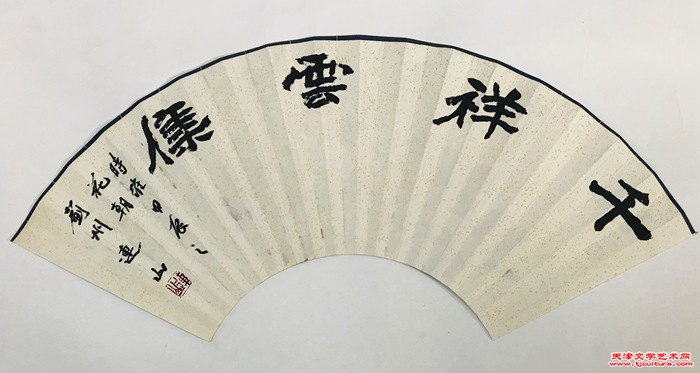 千祥雲集
時在甲辰之
花朝
薊州連山
天津文学艺术网
www.tjculture.com